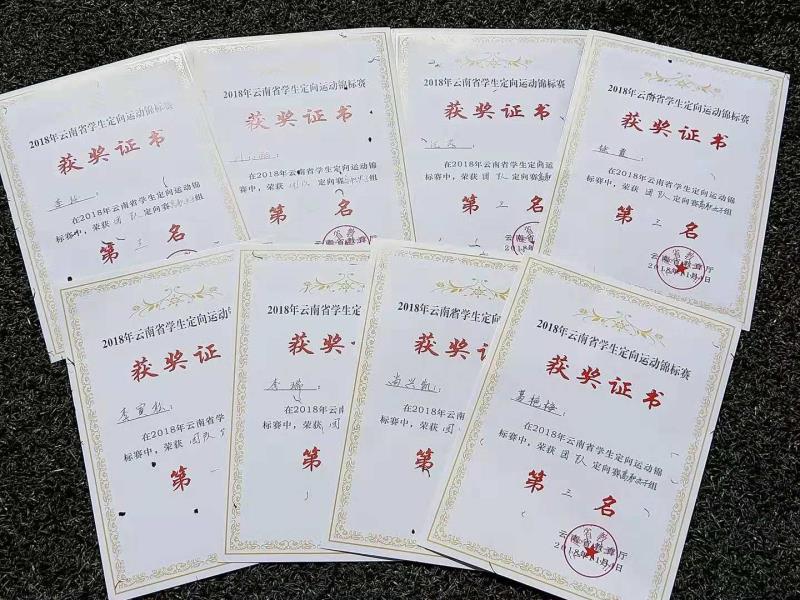 2018年云南省学生定向运动锦标赛
获奖证书
在2018年云南省学生定向运动锦
标赛中,荣获 团 队 定向赛 组
第 三 名
2018年云南省学生定向运动锦标赛
获奖证书
在2018年云南省学生定向运动锦
标赛中,荣获 团队 定向赛 组
第 名
2018年云南省学生定向运动锦标赛
获奖证书
在2018年云南省学生定向运动锦
标赛中,荣获 团 队 定向赛 组
第 三 名
2018年云南省学生定向运动锦标赛
获奖证书
在2018年云南省学生定向运动锦
标赛中,荣获 团 队 定向赛高职女子组
第 三 名
云南省教育厅
2018年11月 日
2018年云南省学生定向运
获奖证
在2018年云南省学生
标赛中,荣获 团队
第
2018年云南省学生
获奖
李瑞:
在2018年云南
标赛中,荣获 团
第
2018年云南省学生定
获奖
尚兴凯:
在2018年云南
标赛中,荣获 团
第
2018年云南省学生定向运动锦标赛
获奖证书
聂艳梅:
在2018年云南省学生定向运动锦
标赛中,荣获 团 队 定向赛高职女子组
第 三 名
云南省教育厅
2018年11月 日